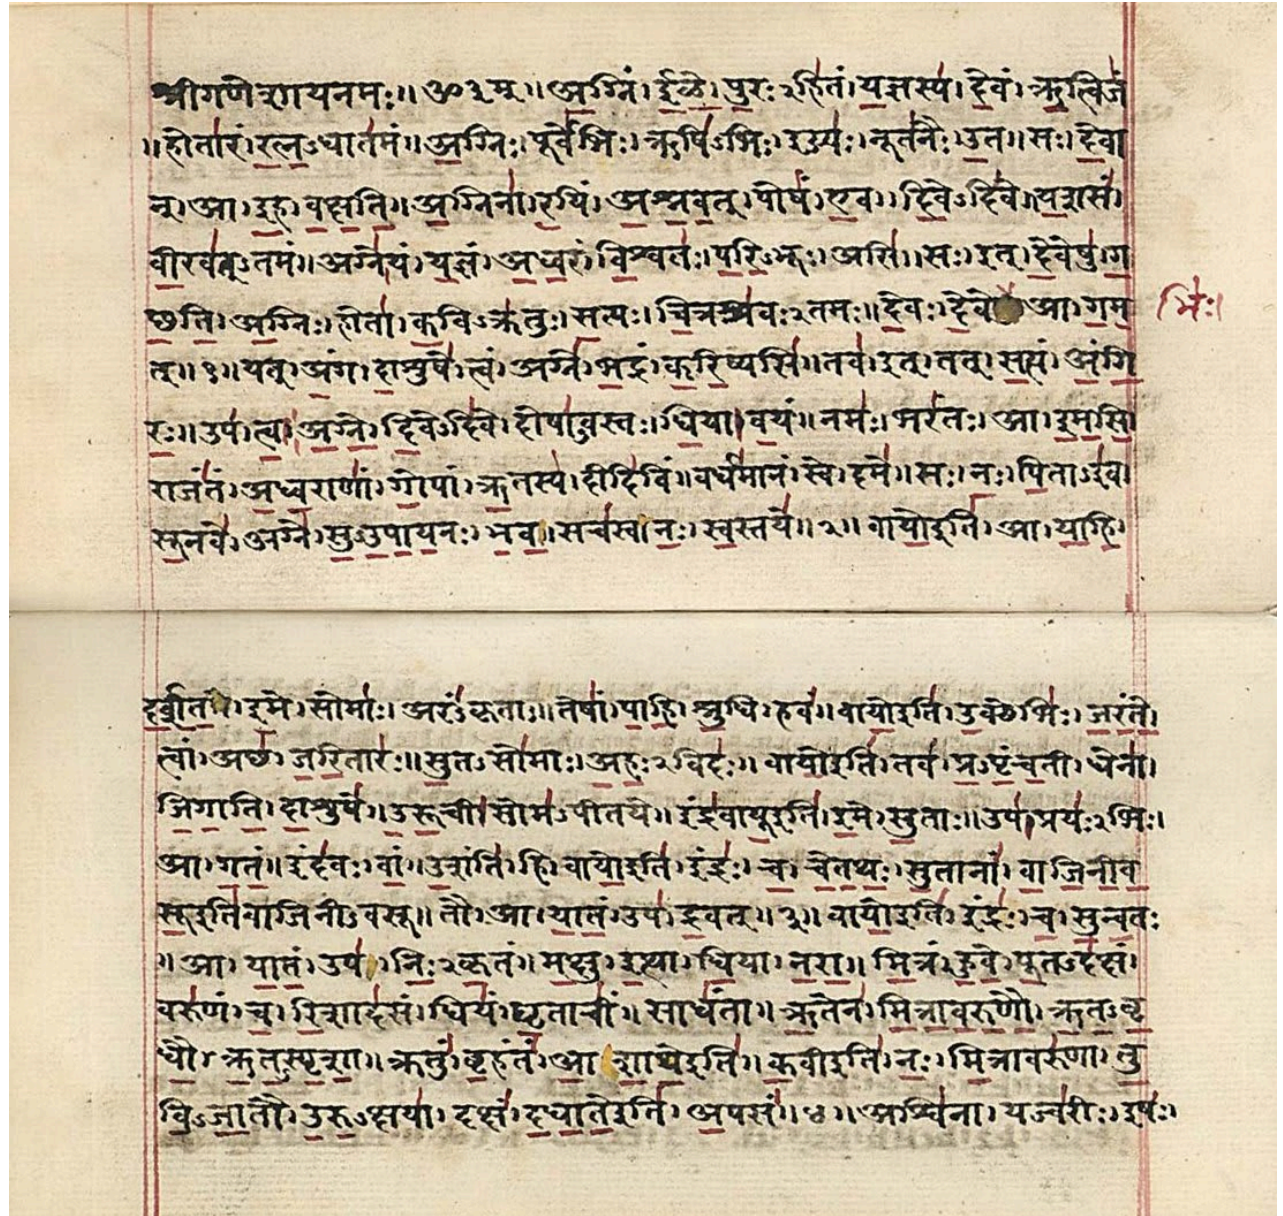 श्रीगणेशायनमः॥ॐ३म्॥अ॒ग्निं।ई॒ळे॒।पु॒रःऽहि॑तं।य॒ज्ञस्य॑।दे॒वं।ऋ॒त्विजं॑
॥होता॑रं।र॒त्न॒ऽधात॑मं॥अ॒ग्निः।पूर्वे॑भिः।ऋषि॑ऽभिः।ईड्यः॑।नूत॑नैः।उ॒त॥सः।दे॒वा
न्।आ।इ॒ह।व॒क्ष॒ति॒॥अ॒ग्निना॑।र॒यिं।अ॒श्न॒व॒त्।पोषं॑।ए॒व।दि॒वेऽदि॑वे॥य॒शसं॑
वी॒रव॑त्ऽतमं॥अग्ने॑।यं।य॒ज्ञं।अ॒ध्व॒रं।वि॒श्वतः॑।प॒रि॒ऽभूः।असि॑॥सः।इत्।दे॒वेषु॑।ग॒
च्छ॒ति॒।अ॒ग्निः।होता॑।क॒विऽक्र॑तुः।स॒त्यः।चि॒त्रश्र॑वःऽतमः॥दे॒वः।दे॒वे आ।ग॒म॒
भिः॑।
त्॥१॥यत्।अं॒ग।दा॒शुषे॑।त्वं।अग्ने॑।भ॒द्रं।क॒रि॒ष्यसि॑॥तव॑।इत्।तत्।स॒त्यं।अं॒गि॒
रः॒॥उप॑।त्वा॒।अ॒ग्ने॒।दि॒वेऽदि॑वे।दोषा॑ऽवस्तः।धि॒या।व॒यं॥नमः॑।भरं॑तः।आ।इ॒म॒सि॒।
राजं॑तं।अ॒ध्व॒राणां॑।गो॒पां।ऋ॒तस्य॑।दीदि॑विं॥वर्ध॑मानं।स्वे।दमे॑॥सः।नः॒।पि॒ताऽइ॑व।
सू॒नवे॑।अग्ने॑।सु॒ऽउ॒पा॒य॒नः।भ॒व॒।सच॑स्व।नः॒।स्व॒स्तये॑॥२॥वायो॒इति॑।आ।या॒हि॒।
द॒र्श॒त॒।इ॒मे।सोमाः॑।अरं॑ऽकृताः॥तेषां॑।पा॒हि॒।श्रु॒धि।हवं॑॥वायो॒इति॑।उ॒क्थेभिः॑।जरं॑ते।
त्वां।अच्छ॑।ज॒रि॒तारः॑॥सु॒तऽसो॑माः।अ॒हः॒ऽविदः॑॥वायो॒इति॑।तव॑।प्र॒ऽपृं॒च॒ती।धेना॑।
जि॒गा॒ति॒।दा॒शुषे॑॥उ॒रू॒ची।सोम॑ऽपीतये॥इंद्र॑वायू॒इति॑।इ॒मे।सु॒ताः॥उप॑।प्रयः॑ऽभिः।
आ।ग॒तं॒॥इंद॑वः।वां॒।उ॒शंति॑।हि॥वायो॒इति॑।इंद्रः॑।च॒।चे॒त॒थः॒।सु॒तानां॑।वा॒जि॒नी॒व॒
सू॒इति॑वाजिनीऽवसू॥तौ।आ।या॒तं॒।उप॑।द्र॒वत्॥३॥वायो॒इति॑।इंद्रः॑।च॒।सु॒न्व॒तः
॥आ।या॒तं॒।उप॑।निः॒ऽकृ॒तं॥म॒क्षु।इ॒त्था।धि॒या।न॒रा॒॥मि॒त्रं।हु॒वे॒।पू॒तऽद॑क्षं।
वरु॑णं।च॒।रि॒शाद॑सं।धियं॑।घृ॒ताचीं॑।साधं॑ता॥ऋ॒तेन॑।मि॒त्रा॒व॒रु॒णौ॒।ऋ॒त॒ऽवृ॒
धौ॒।ऋ॒त॒ऽस्पृ॒शा॒॥क्रतुं॑।बृ॒हंतं॑।आ॒शा॒थे॒इति॑॥क॒वीइति॑।नः॒।मि॒त्रावरु॑णा।तु॒
वि॒ऽजा॒तौ।उ॒रु॒ऽक्षया॑।दक्षं॑।द॒धा॒ते॒इति॑।अ॒पसं॑॥४॥अश्वि॑ना।यज्व॑रीः।इषः॑।